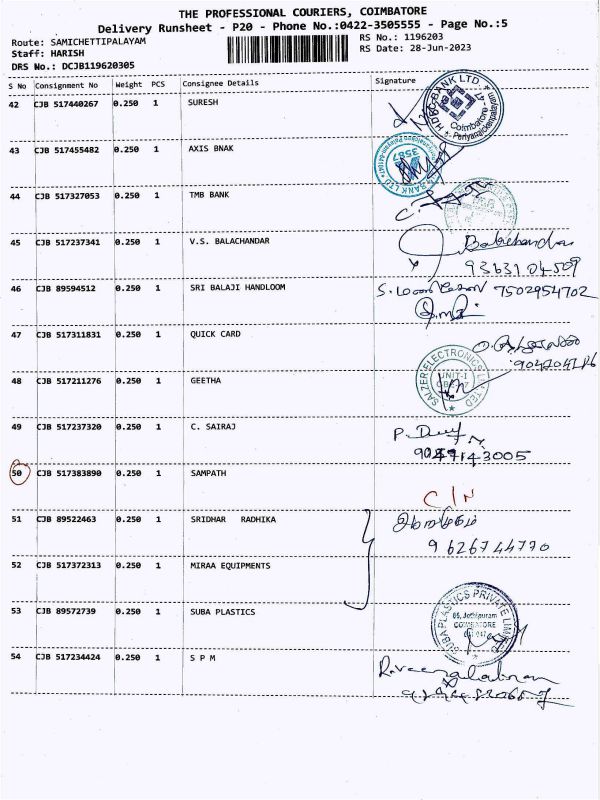 THE PROFESSIONAL COURIERS, COIMBATORE
Delivery Runsheet - P20 - Phone No.:0422-3505555 - Page No.:5
Route: SAMICHETTIPALAYAM
RS No.: 1196203
Staff: HARISH
RS Date: 28-Jun-2023
DRS No.: DCJB119620305
S No Consignment No Weight PCS Consignee Details Signature
42 CJB 517440267 0.250 1 SURESH
HDFC BANK LTD
Coimbatore - 47
43 CJB 517455482 0.250 1 AXIS BNAK
3587
BANK LTD
44 CJB 517327053 0.250 1 TMB BANK
45 CJB 517237341 0.250 1 V.S. BALACHANDAR
Balachandar
9363104509
46 CJB 89594512 0.250 1 SRI BALAJI HANDLOOM
7502954702
47 CJB 517311831 0.250 1 QUICK CARD
48 CJB 517211276 0.250 1 GEETHA
SALZER ELECTRONICS LIMITED
UNIT-I
49 CJB 517237320 0.250 1 C. SAIRAJ
50 CJB 517383890 0.250 1 SAMPATH
C/N
51 CJB 89522463 0.250 1 SRIDHAR RADHIKA
9626744770
52 CJB 517372313 0.250 1 MIRAA EQUIPMENTS
53 CJB 89572739 0.250 1 SUBA PLASTICS
SUBA PLASTICS PRIVATE LIMITED
COIMBATORE
54 CJB 517234424 0.250 1 S P M